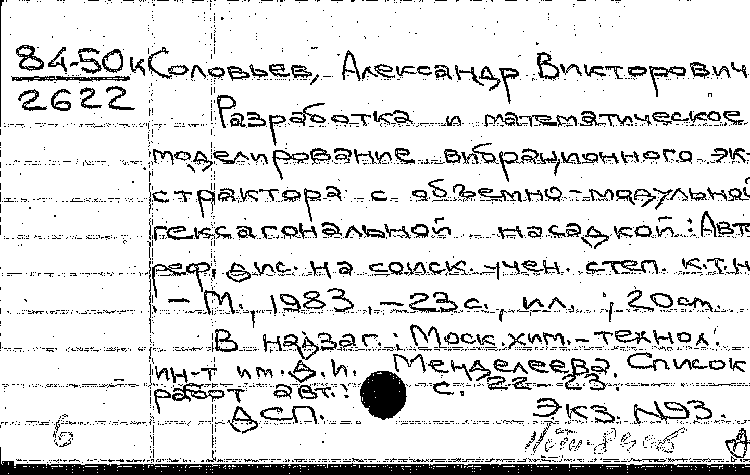 84-50к Соловьев, Александр Викторович
2622
Разработка и математическое
моделирование вибрационного эк-
страктора с объемно-модульной
гексагональной насадкой: Авто
реф. дис. на соиск. учен. степ. к.т.н
- М., 1983. - 23 с., ил. ; 20 см.
В надзаг.: Моск. хим.-технол.
ин-т им. Д. И. Менделеева. Список
работ авт.: с. 22-23.
ДСП. Экз. N93.
6